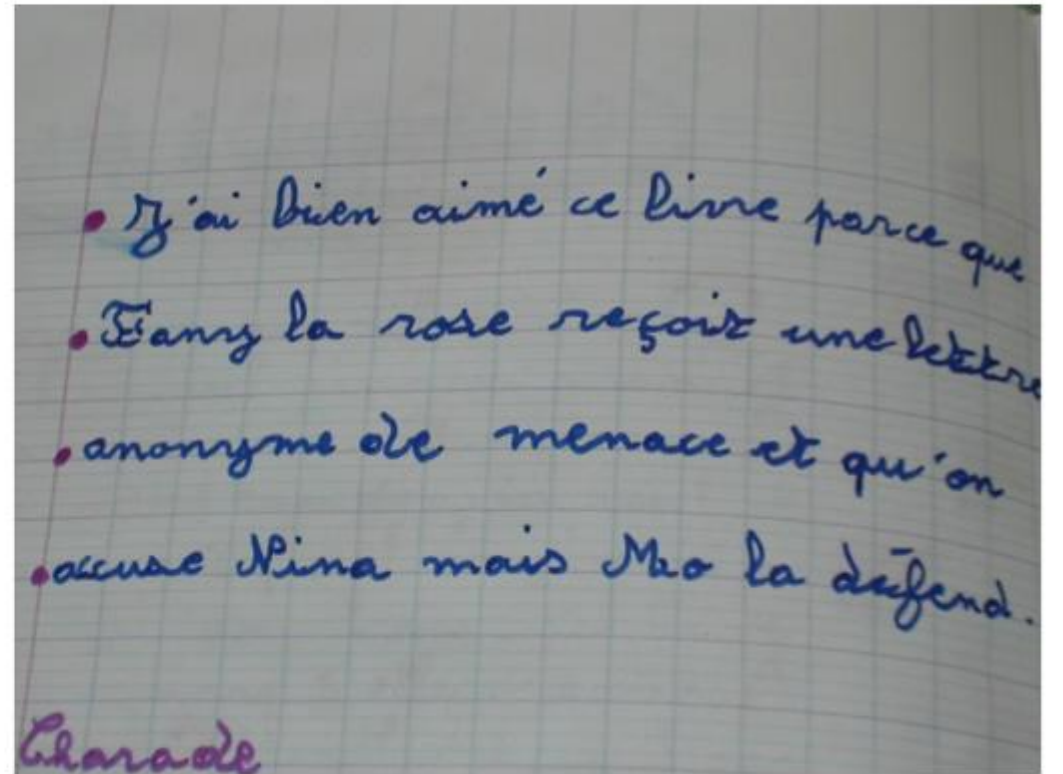 • J'ai bien aimé ce livre parce que
• Fany la rose reçoit une lettre
• anonyme de menace et qu'on
• accuse Nina mais Mao la défend.
Charade